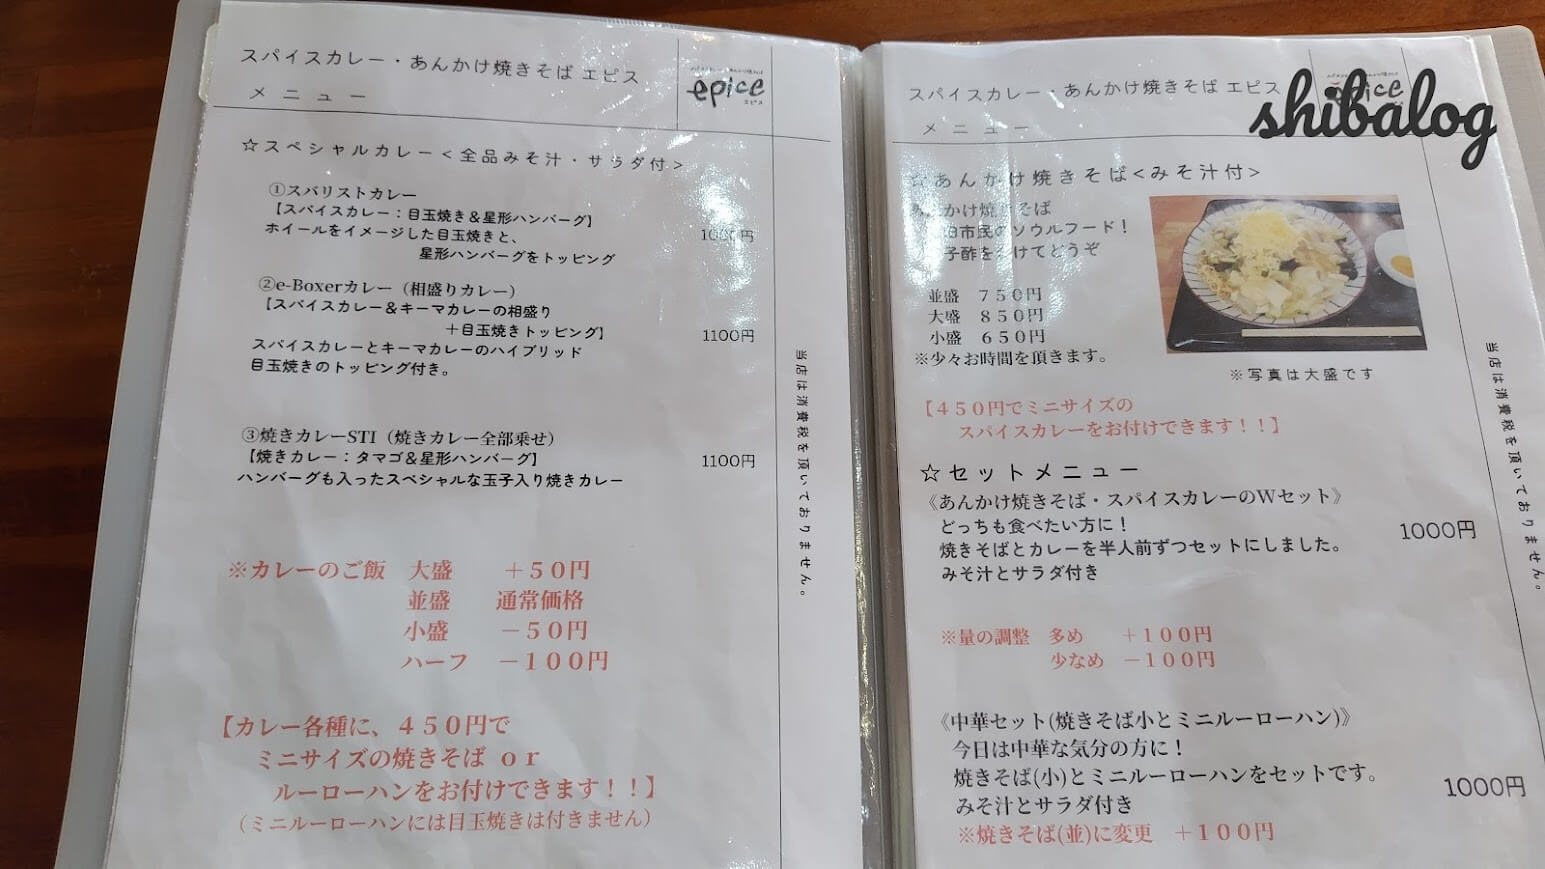 スパイスカレー・あんかけ焼きそば エピス
メニュー
epice
エピス
☆スペシャルカレー<全品みそ汁・サラダ付>
①スバリストカレー
【スパイスカレー：目玉焼き＆星形ハンバーグ】
ホイールをイメージした目玉焼きと、
星形ハンバーグをトッピング
②e-Boxerカレー（相盛りカレー）
【スパイスカレー＆キーマカレーの相盛り
＋目玉焼きトッピング】
1100円
スパイスカレーとキーマカレーのハイブリッド
目玉焼きのトッピング付き。
③焼きカレーSTI（焼きカレー全部乗せ）
【焼きカレー：タマゴ＆星形ハンバーグ】
1100円
ハンバーグも入ったスペシャルな玉子入り焼きカレー
※カレーのご飯 大盛 ＋５０円
並盛 通常価格
小盛 －５０円
ハーフ －１００円
【カレー各種に、４５０円で
ミニサイズの焼きそば ｏｒ
ルーローハンをお付けできます！！】
（ミニルーローハンには目玉焼きは付きません）
当店は消費税を頂いておりません。
スパイスカレー・あんかけ焼きそば エピス
メニュー
shibalog
☆あんかけ焼きそば<みそ汁付>
かけ焼きそば
市民のソウルフード！
子酢をかけてどうぞ
並盛 ７５０円
大盛 ８５０円
小盛 ６５０円
※少々お時間を頂きます。
※写真は大盛です
【４５０円でミニサイズの
スパイスカレーをお付けできます！！】
☆セットメニュー
《あんかけ焼きそば・スパイスカレーのWセット》
どっちも食べたい方に！
1000円
焼きそばとカレーを半人前ずつセットにしました。
みそ汁とサラダ付き
※量の調整 多め ＋１００円
少なめ －１００円
《中華セット(焼きそば小とミニルーローハン)》
今日は中華な気分の方に！
焼きそば(小)とミニルーローハンをセットです。
1000円
みそ汁とサラダ付き
※焼きそば(並)に変更 ＋１００円
当店は消費税を頂いておりません。